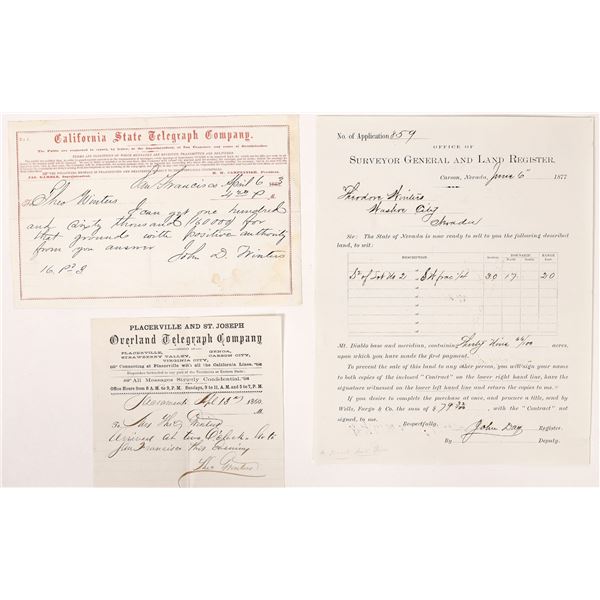 No. 1.
California State Telegraph Company.
TERMS AND CONDITIONS ON WHICH MESSAGES ARE RECEIVED, TRANSMITTED AND DELIVERED.
H. W. CARPENTIER, President.
JAS. GAMBLE, Superintendent.
San Francisco April 6 1863
4:20 P. M.
To Theo Winters
I can get one hundred
and sixty thousand 160000 for
that grounds with positive authority
from you answer
John D. Winters
16 Pd
PLACERVILLE AND ST. JOSEPH
Overland Telegraph Company
PLACERVILLE, GENOA,
STRAWBERRY VALLEY, CARSON CITY,
VIRGINIA CITY,
Connecting at Placerville with all the California Lines.
All Messages Strictly Confidential.
Office Hours from 8 A. M. to 9 P. M. Sundays, 9 to 11, A. M. and 5 to 7, P. M.
Sacramento Apl 13 186
M.
To Mrs Theo Winters
Arrived at two O'clock. Go to
San Francisco this evening
Theo Winters
No. of Application 859
OFFICE OF
SURVEYOR GENERAL AND LAND REGISTER,
Carson, Nevada, June 6" 1877
Theodore Winters
Washoe City
Nevada
Sir: The State of Nevada is now ready to sell to you the following described
land, to wit:
DESCRIPTION. Section TOWNSHIP North South RANGE East
of Lot No 2 30 17 20
Mt. Diablo base and meridian, containing Thirty Nine /100 acres,
upon which you have made the first payment.
To prevent the sale of this land to any other person, you will sign your name
to both copies of the inclosed "Contract" on the lower right hand line, have the
signature witnessed on the lower left hand line and return the copies to me.
If you desire to complete the purchase at once, and procure a title, send by
Wells, Fargo & Co. the sum of $ 79 with the "Contract" not
signed, to me.
Respectfully,
John Day Register.
By Deputy.